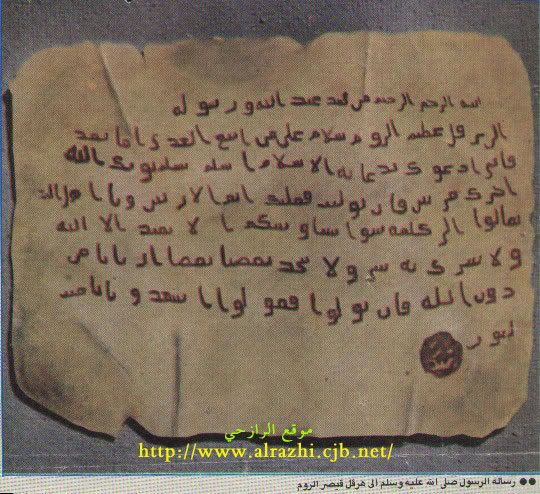 بسم الله الرحمن الرحيم من محمد عبد الله ورسوله
الى هرقل عظيم الروم سلام على من اتبع الهدى اما بعد
فانى ادعوك بدعاية الاسلام اسلم تسلم يوتك الله
اجرك مرتين فان توليت فعليك اثم الاريسيين ويا اهل الكتاب
تعالوا الى كلمة سوا بيننا وبينكم الا نعبد الا الله
ولا نشرك به شى ولا يتخذ بعضنا بعضا اربابا من
دون الله فان تولوا فقولوا اشهدوا بانا مسلمون
موقع الرازحي
http://www.alrazhi.cjb.net/
●● رسالة الرسول صلى الله عليه وسلم الى هرقل قيصر الروم